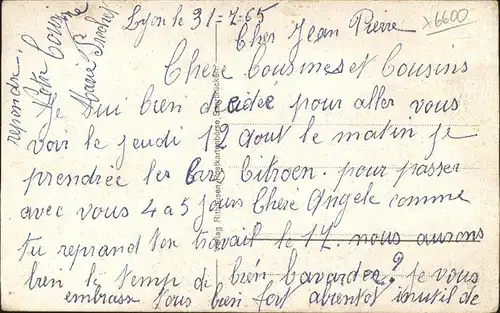 Lyon le 31-7-65
Cher Jean Pierre
x6600
Chere Cousines et Cousins
Je sui bien décidée pour aller vous
voir le jeudi 12 Aout le matin je
prendrée les Cars Citroen. pour passer
avec vous 4 a 5 jours Chere Angele comme
tu reprand ton travail le 17. nous aurons
bien le temp de bien bavardee? je vous
embrass tous bien fort abientot inutil de
repondre.
Votre Cousine
Marie